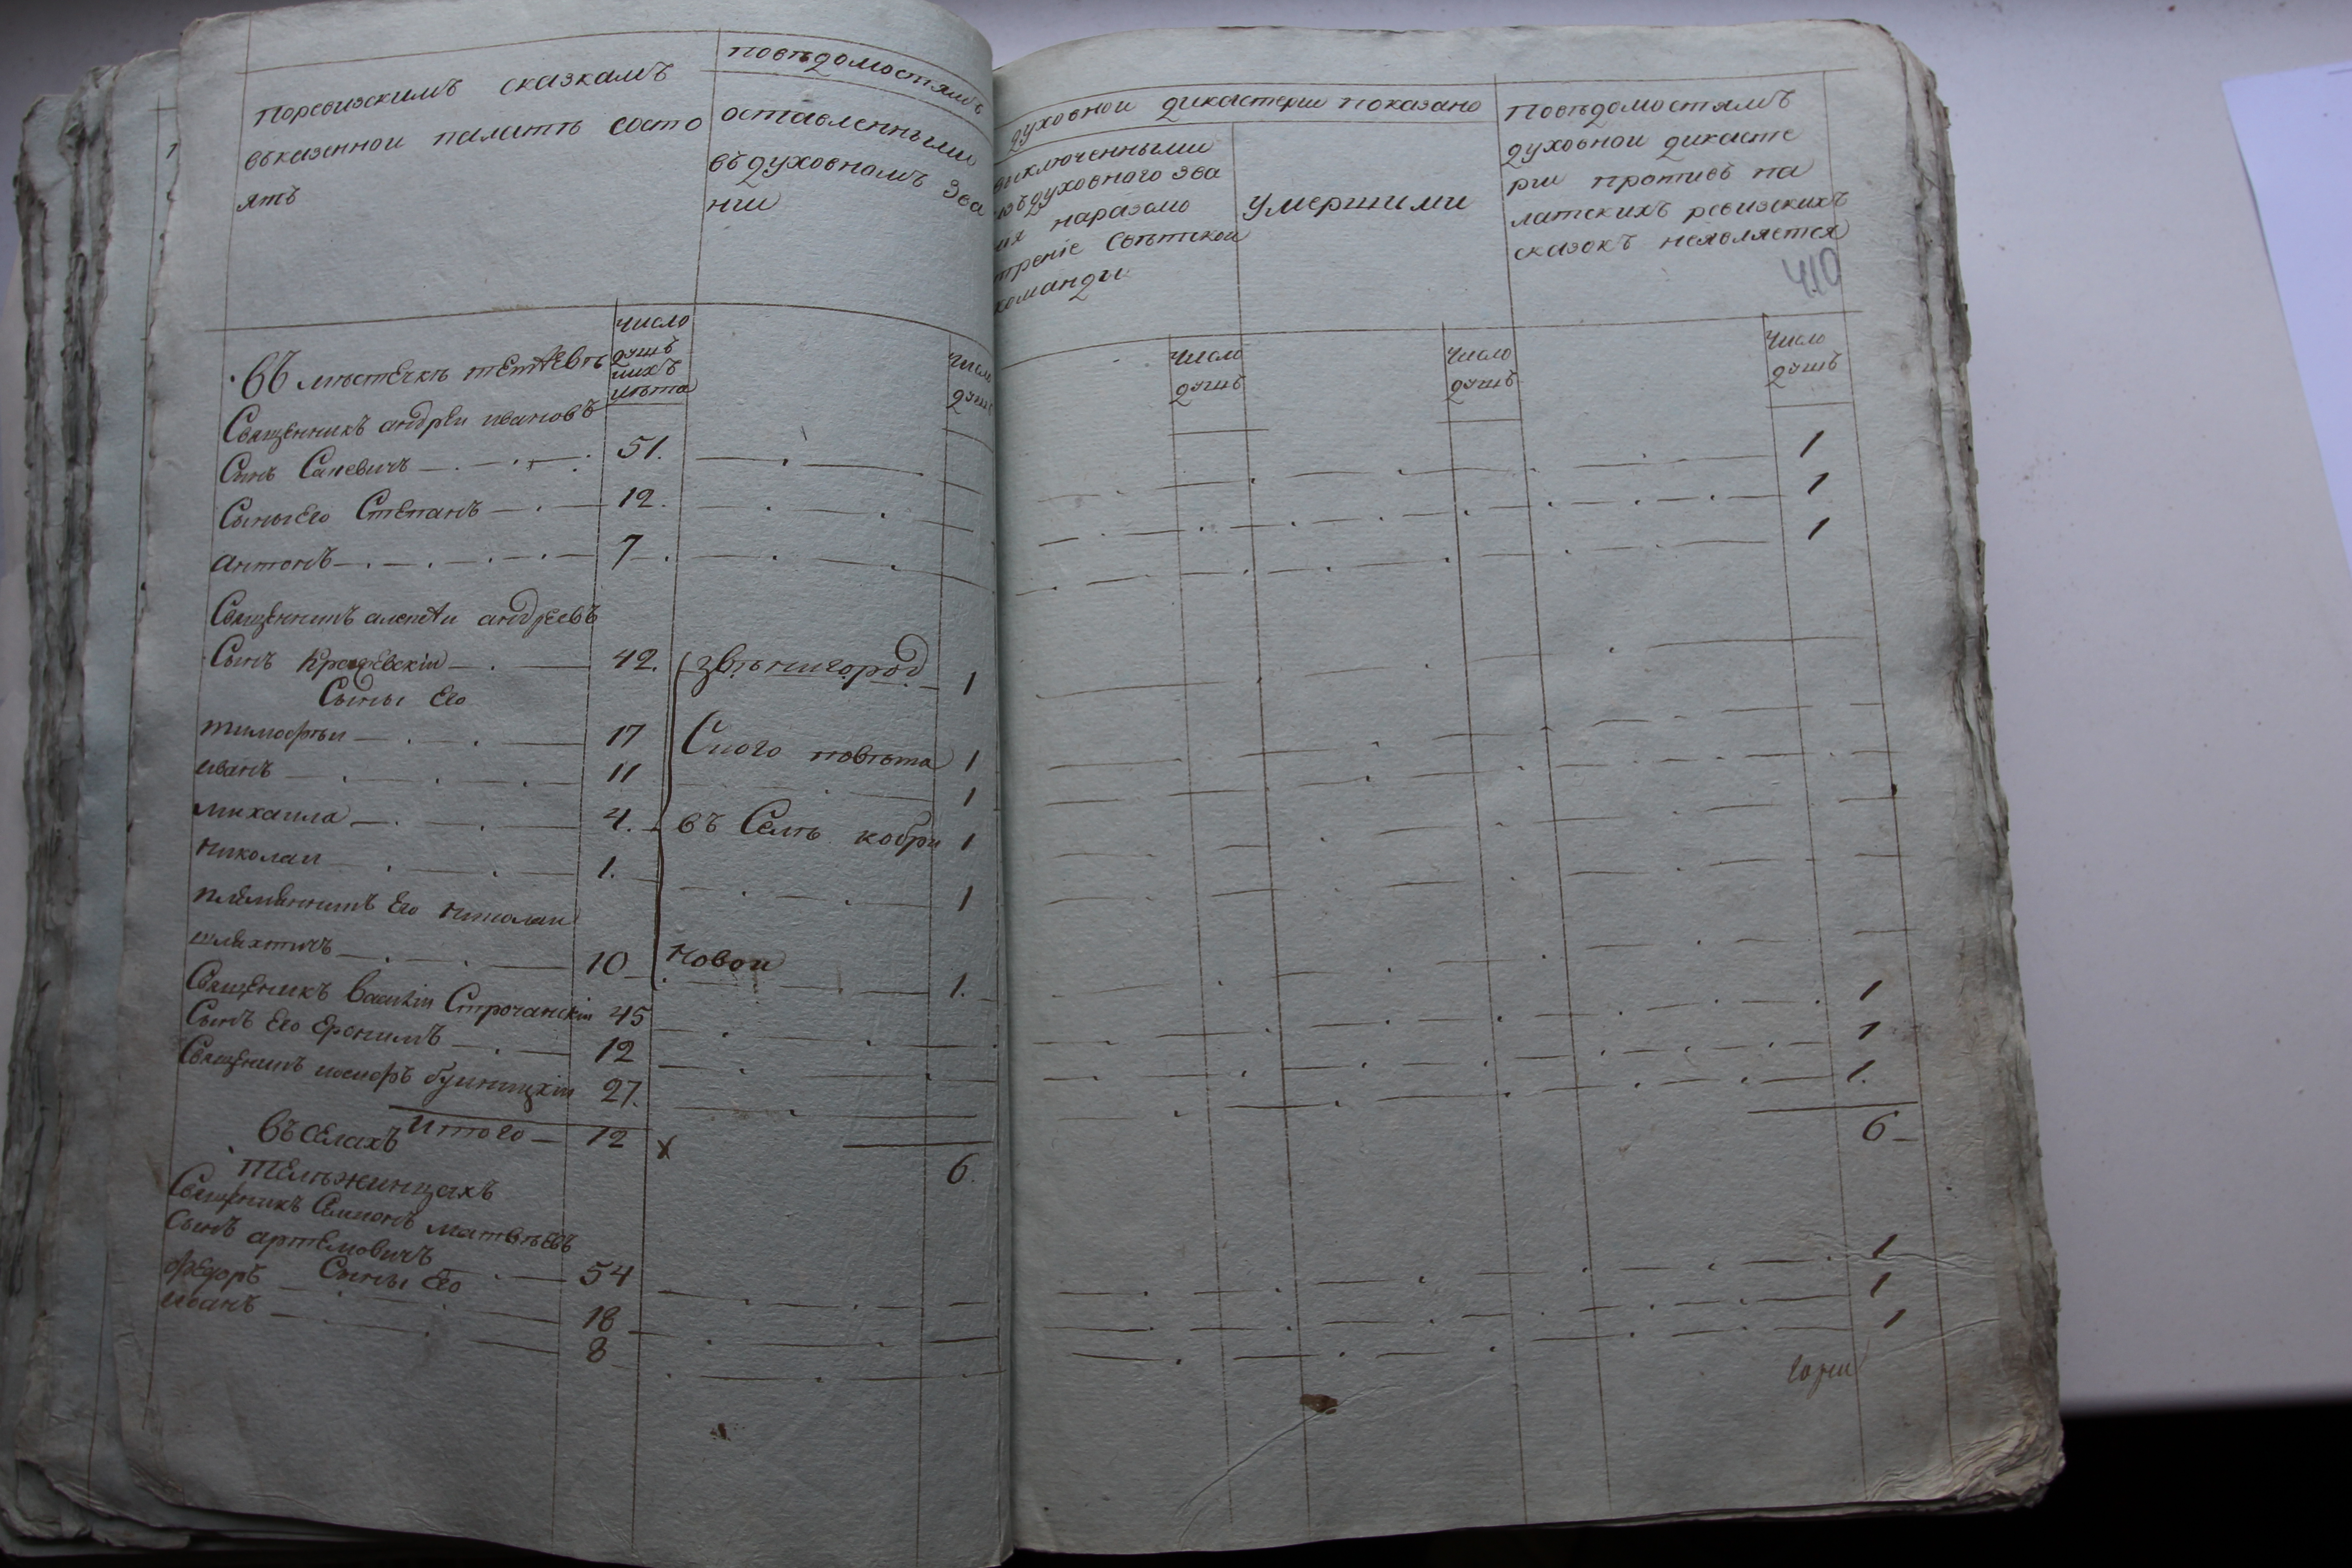 поревизскимъ сказкамъ
въказеннои палатѣ состо
ятъ
повѣдомостямъ
оставленными
въдуховномъ зва
нии
духовнои дикастерии показано
выключенными
изъдуховного зва
ия наразсмо
трение свѣтскои
команды
умершими
Повѣдомостямъ
духовнои дикасте
рии противъ па
латскихъ ревизскихъ
сказокъ неявляется
410
число
душъ
ихъ
лѣта
число
душъ
Число
душъ
Число
душъ
Число
душъ
Въ мѣстечкѣ тетиевѣ
Священникъ андреи ивановъ
Сынъ Саневичъ 51. 1
Сыны Его Степанъ 12. 1
антонъ 7 1
Священникъ алексеи андреевъ
Сынъ Крашевскіи 42. звѣнигород 1
Сыны Его
тимофѣи 17 Ского повѣта 1
иванъ 11 1
михаила 4. въ Селѣ кобри 1
николаи 1. 1
племянникъ Его николаи
шляхтичъ 10 новои 1.
Священикъ василіи Строчанскіи 45 1
Сынъ Его Еронимъ 12 1
Священикъ иосифъ 27. 1.
Итого 12 х 6. 6
въселахъ
телѣжинцахъ
Священикъ Симионъ матвѣевъ
сынъ артемовичъ 54 1
Сыны Его
федоръ 18 1
иванъ 8 1